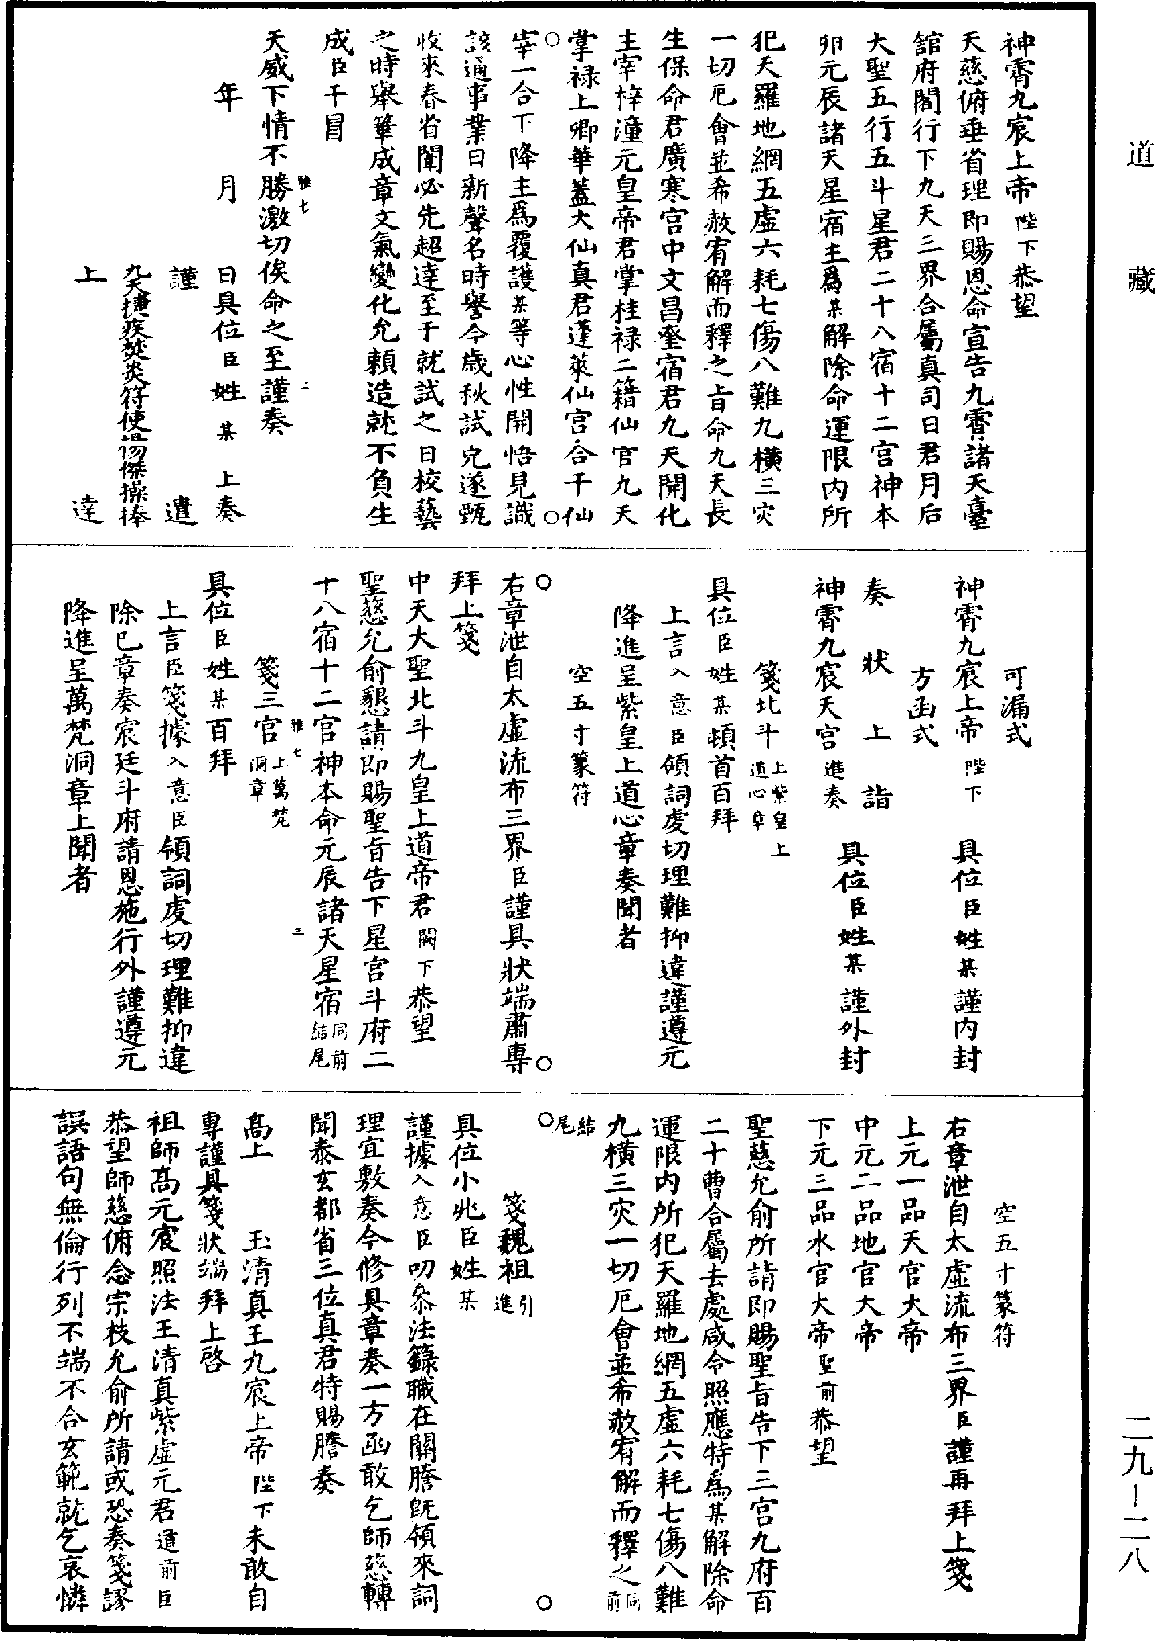 道藏
神霄九宸上帝陛下恭望
天慈俯垂省理即賜恩命宣告九霄諸天臺
館府閣行下九天三界合屬真司日君月后
大聖五行五斗星君二十八宿十二宮神本
卯元辰諸天星宿主為某解除命運限内所
犯天羅地網五虛六耗七傷八難九橫三灾
一切厄會並希赦宥解而釋之旨命九天長
生保命君廣寒宮中文昌奎宿君九天開化
主宰梓潼元皇帝君掌桂祿二籍仙官九天
掌祿上卿華蓋大仙真君蓬萊仙宮合干仙
宰一合下降主為覆護某等心性開悟見識
該通事業日新聲名時譽今歲秋試允遂甄
收來春省闈必先超達至于就試之日校藝
之時舉筆成章文氣變化允賴造就不負生
成臣干冒
天威下情不勝激切俟命之至謹奏
雅七
二
年月日具位臣姓某上奏
謹遣
九天捷疾焚炎符使楊傑操捧
上達
可漏式
神霄九宸上帝陛下具位臣姓某謹内封
方函式
奏狀上詣
神霄九宸天宮進奏具位臣姓某謹外封
箋北斗上紫皇上道心章
具位臣姓某頓首百拜
上言入意臣領詞虔切理難抑違謹遵元
降進呈紫皇上道心章奏聞者
空五寸篆符
右章泄自太虛流布三界臣謹具狀端肅專
拜上箋
中天大聖北斗九皇上道帝君闕下恭望
聖慈允俞懇請即賜聖旨告下星宮斗府二
十八宿十二宮神本命元辰諸天星宿同前結尾
雅七
三
箋三官上萬梵洞章
具位臣姓某百拜
上言臣箋據入意臣領詞虔切理難抑違
除已章奏宸廷斗府請恩施行外謹遵元
降進呈萬梵洞章上聞者
空五寸篆符
右章泄自太虛流布三界臣謹再拜上箋
上元一品天官大帝
中元二品地官大帝
下元三品水官大帝聖前恭望
聖慈允俞所請即賜聖旨告下三宮九府百
二十曹合屬去處咸令照應特為某解除命
運限内所犯天羅地網五虛六耗七傷八難
九橫三灾一切厄會並希赦宥解而釋之同前
結尾
箋魏祖引進
具位小兆臣姓某
謹據入意臣叨叅法籙職在關謄旣領來詞
理宜敷奏今修具章奏一方函敢乞師慈轉
聞泰玄都省三位真君特賜謄奏
高上玉清真王九宸上帝陛下未敢自
專謹具箋狀端拜上啓
祖師高元宸照法王清真紫虛元君道前臣
恭望師慈俯念宗枝允俞所請或恐奏箋謬
誤語句無倫行列不端不合玄範就乞哀憐
二九-二八